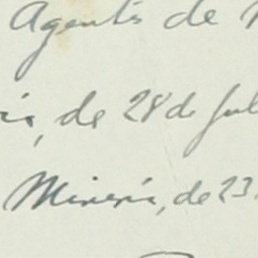 Agentes de
de 28 de Jul
Minería, de 23